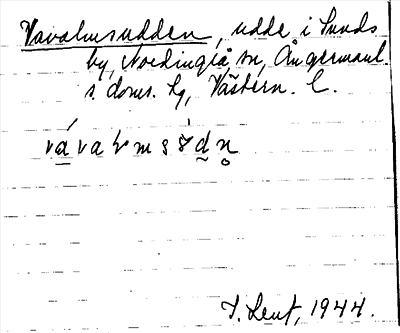 Vavalmsudden, udde i Sunds
by, Nordingrå sn, Ångermanl.
s. doms. hg, Västern. l.
T. Lent, 1944.